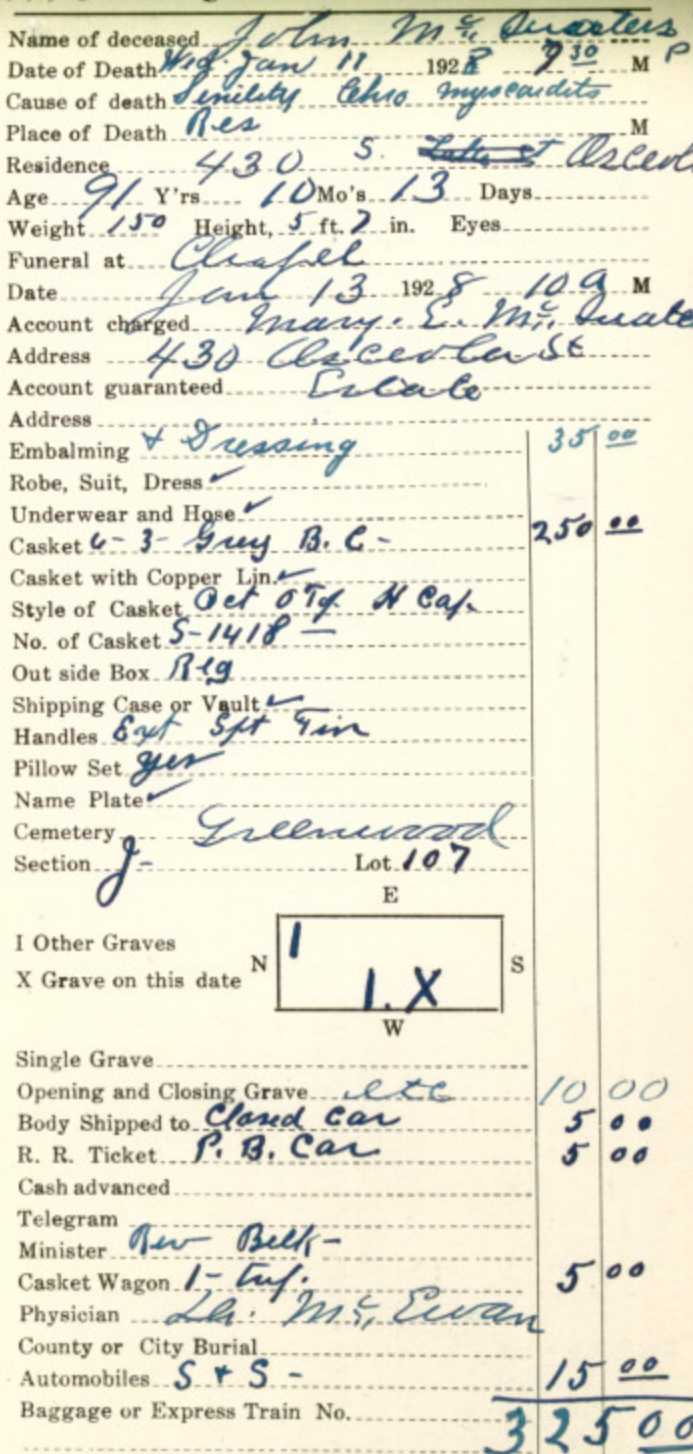 Name of deceased John Mc Quaters
Date of Death Wed. Jan 11 1928 7 30 P M
Cause of death Senility Chro myocardits
Place of Death Res M
Residence 430 S. Osceola
Age 91 Y'rs 10 Mo's 13 Days
Weight 150 Height, 5 ft. 7 in. Eyes
Funeral at Chapel
Date Jan 13 1928 10 a M
Account charged Mary. E. Mc Quate
Address 430 Osceola St
Account guaranteed Estate
Address
Embalming + Dressing 35 00
Robe, Suit, Dress ✓
Underwear and Hose ✓
Casket 6-3- Grey B. C- 250 00
Casket with Copper Lin. ✓
Style of Casket Oct O Tp. H Cap.
No. of Casket S-1418 —
Out side Box Reg
Shipping Case or Vault ✓
Handles Ext Spt Tin
Pillow Set yes
Name Plate ✓
Cemetery Greenwood
Section J- Lot 107
E
I Other Graves
N 1 S
X Grave on this date
1. X
W
Single Grave
Opening and Closing Grave etc 10 00
Body Shipped to Closed Car 5 00
R. R. Ticket P. B. Car 5 00
Cash advanced
Telegram
Minister Rev Belk-
Casket Wagon 1- 5 00
Physician Dr. Mc, Ewan
County or City Burial
Automobiles S + S - 15 00
Baggage or Express Train No. 325 00